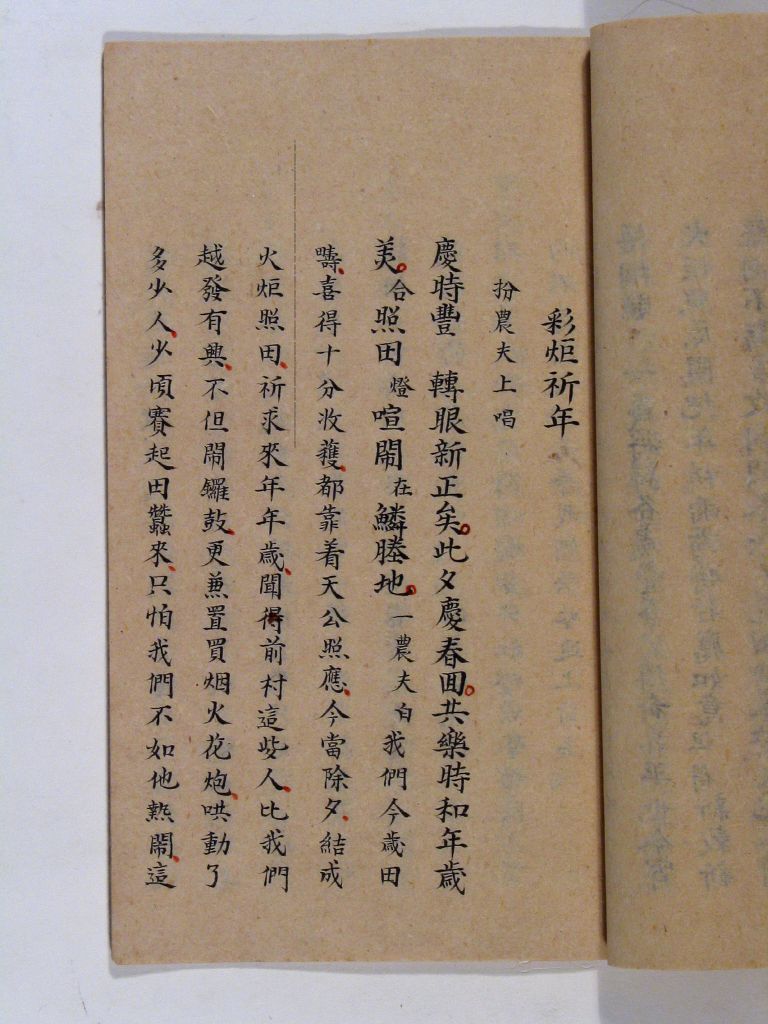 彩炬祈年
扮農夫上唱
慶時豐 轉眼新正矣此夕慶春囬共樂時和年歲
美合照田燈喧鬧在鱗塍地一農夫白我們今歲田
疇喜得十分收穫都靠着天公照應今當除夕結成
火炬照田祈求來年年歲聞得前村這些人比我們
越發有興不但鬧鑼鼓更兼置買烟火花炮哄動了
多少人少頃賽起田蠶來只怕我們不如他熱鬧這